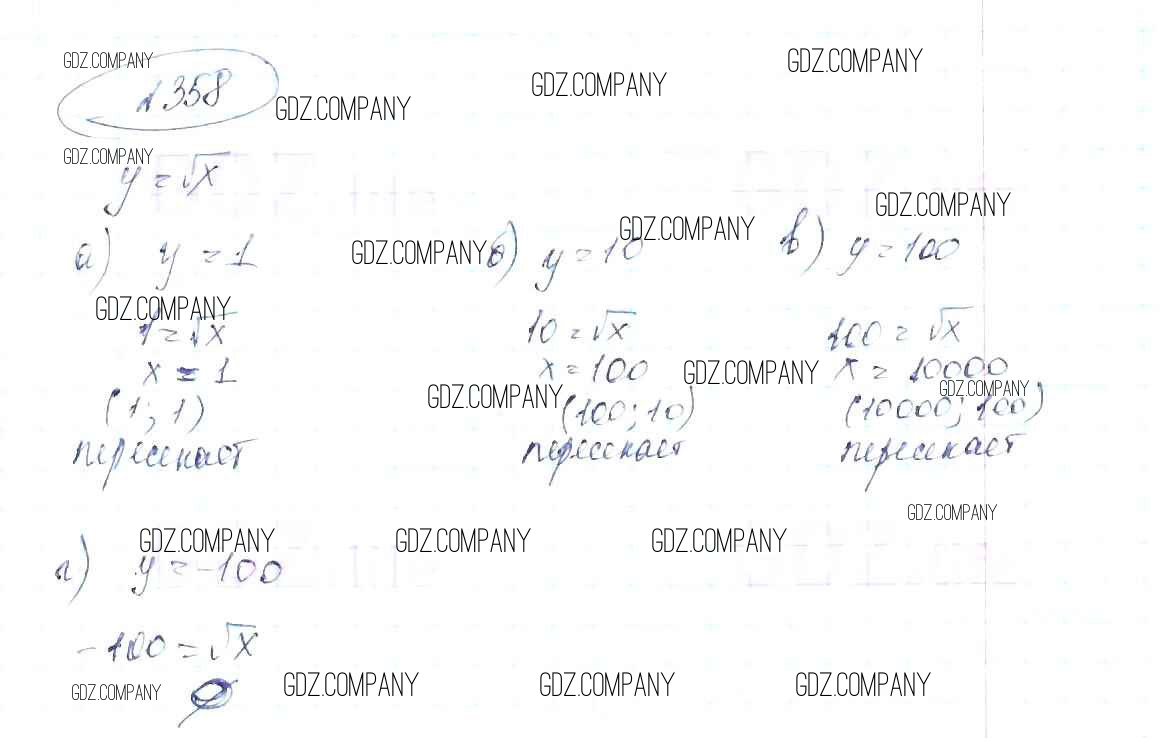 GDZ.COMPANY GDZ.COMPANY
№358 GDZ.COMPANY GDZ.COMPANY
GDZ.COMPANY
y = √x
GDZ.COMPANY
а) y = 1 GDZ.COMPANY б) y = 10 GDZ.COMPANY в) y = 100
GDZ.COMPANY
1 = √x 10 = √x 100 = √x
x = 1 x = 100 GDZ.COMPANY x = 10000
GDZ.COMPANY GDZ.COMPANY
(1; 1) (100; 10) (10000; 100)
пересекает пересекает пересекает
GDZ.COMPANY
GDZ.COMPANY GDZ.COMPANY GDZ.COMPANY
г) y = -100
-100 = √x
GDZ.COMPANY ∅ GDZ.COMPANY GDZ.COMPANY GDZ.COMPANY